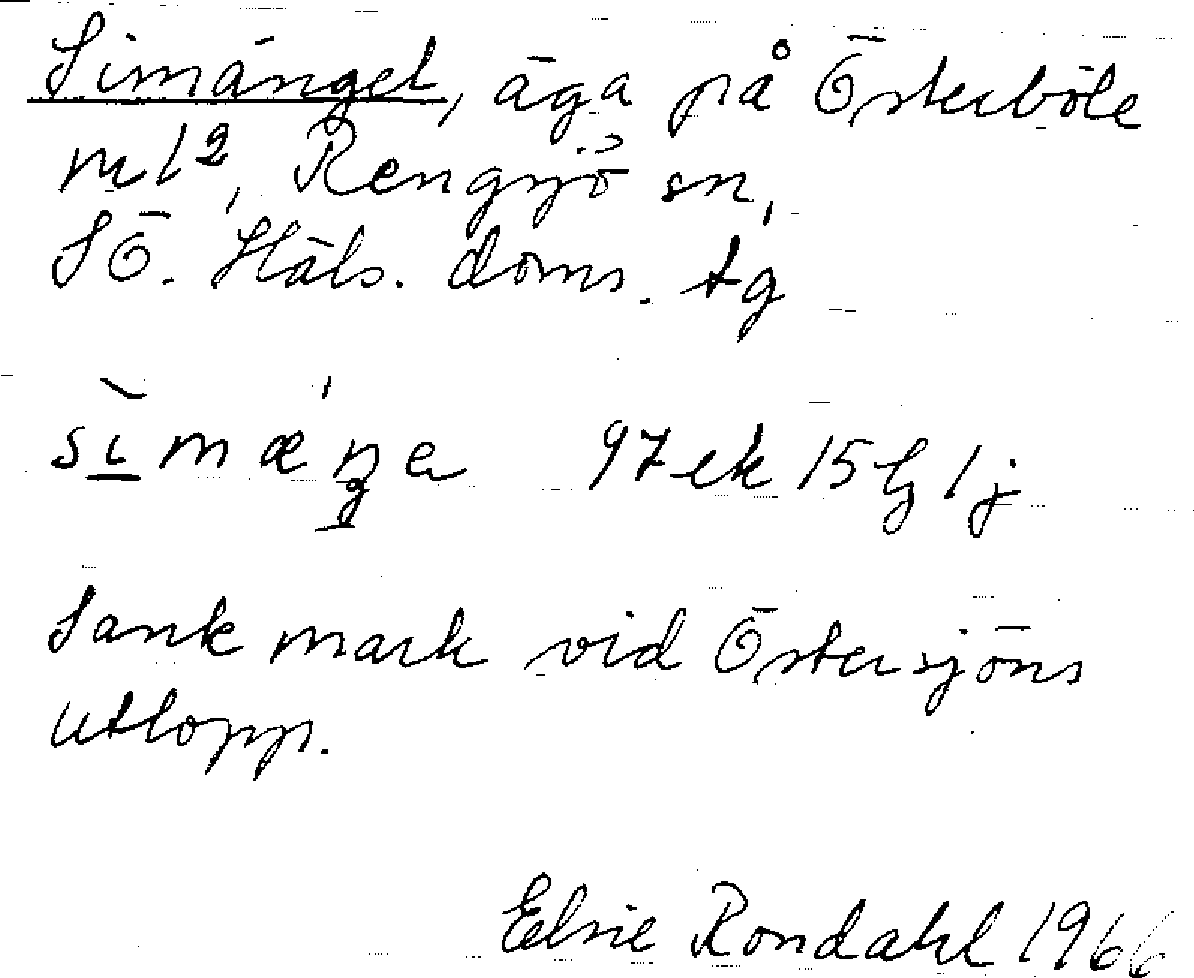 Simänget, äga på Österböle
m1², Rengsjö sn,
SÖ. Häls. doms. tg
sìmæ'ŋe 97 ek 15 Gj 1j
Sank mark vid Östersjöns
utlopp.
Elsie Rondahl 1966